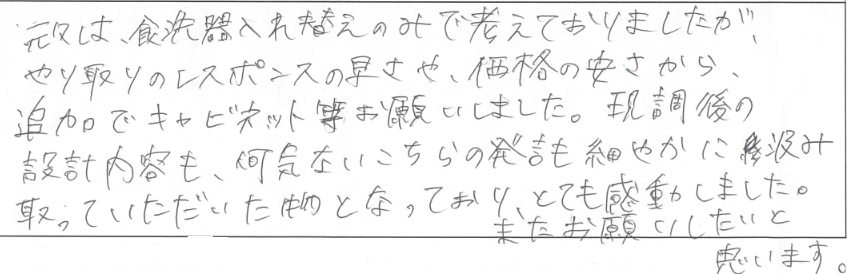 元々は、食洗器入れ替えのみで考えておりましたが、
やり取りのレスポンスの早さや、価格の安さから、
追加でキャビネット等お願いしました。現調後の
設計内容も、何気ないこちらの発言も細やかに汲み
取っていただいた物となっており、とても感動しました。
またお願いしたいと
思います。